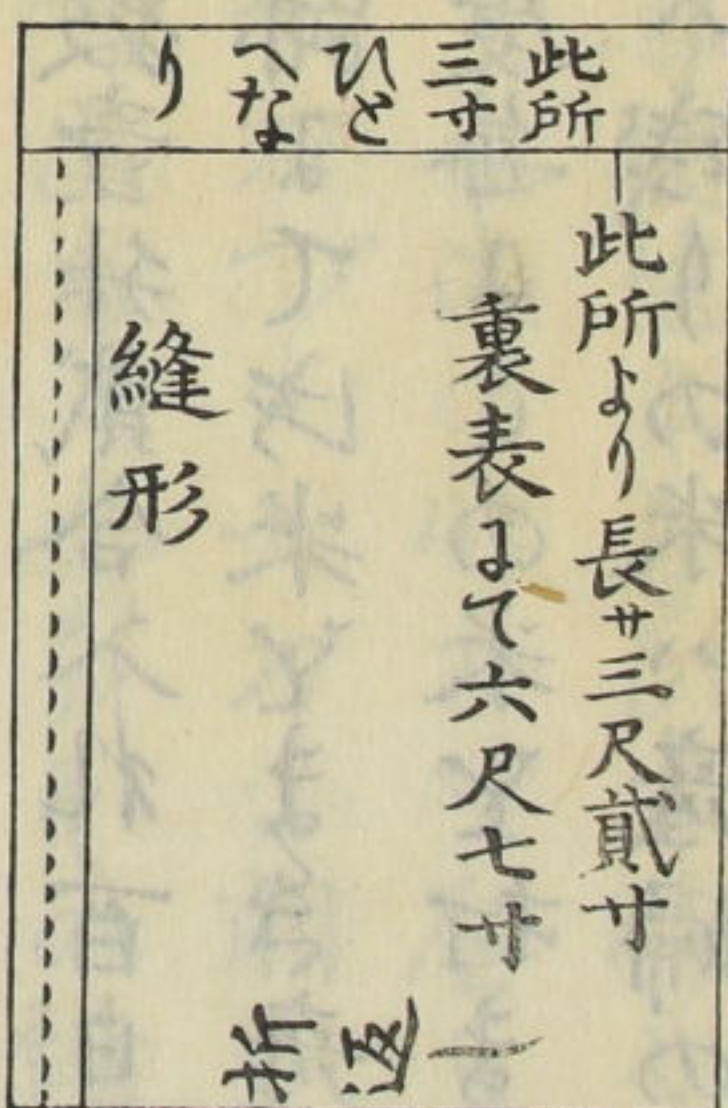 此所
三寸
ひと
へな
り
此所より長サ三尺貳寸
裏表にて六尺七寸
縫形
折返